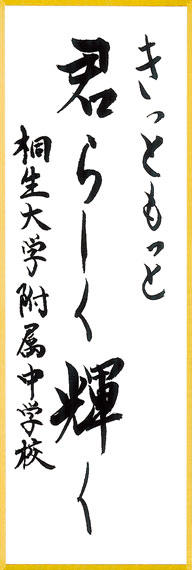 きっともっと
君らしく輝く
桐生大学附属中学校